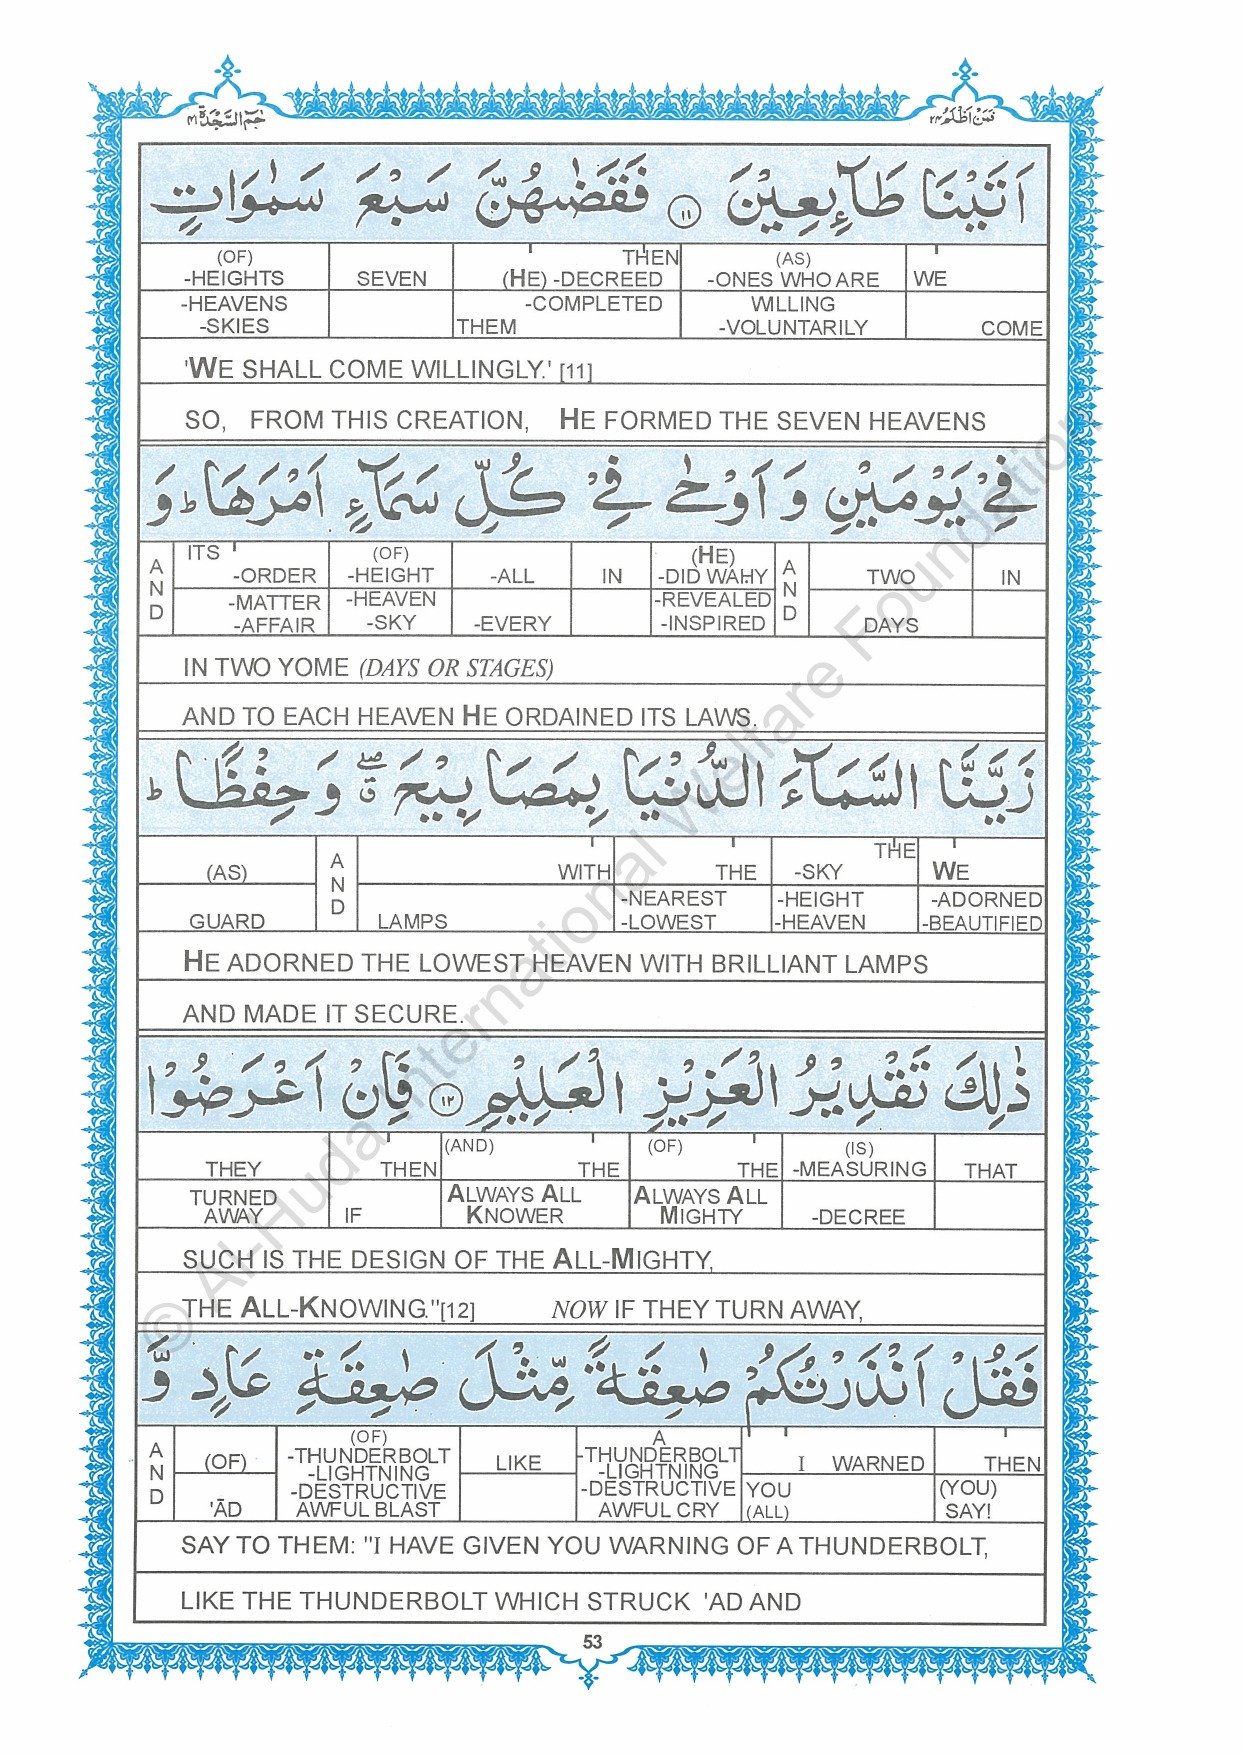 حٰمٓ السَّجْدَة ٤١
فَمَنْ اَظْلَمُ ٢٤
اَتَيْنَا طَآئِعِيْنَ ١١ فَقَضٰهُنَّ سَبْعَ سَمٰوَاتٍ
(OF) THEN (AS)
-HEIGHTS SEVEN (HE) -DECREED -ONES WHO ARE WE
-HEAVENS -COMPLETED WILLING
-SKIES THEM -VOLUNTARILY COME
'WE SHALL COME WILLINGLY.' [11]
SO, FROM THIS CREATION, HE FORMED THE SEVEN HEAVENS
فِيْ يَوْمَيْنِ وَ اَوْحٰى فِيْ كُلِّ سَمَآءٍ اَمْرَهَا ؕ وَ
AND ITS (OF) (HE) AND
-ORDER -HEIGHT -ALL IN -DID WAHY TWO IN
-MATTER -HEAVEN -REVEALED
-AFFAIR -SKY -EVERY -INSPIRED DAYS
IN TWO YOME (DAYS OR STAGES)
AND TO EACH HEAVEN HE ORDAINED ITS LAWS.
زَيَّنَّا السَّمَآءَ الدُّنْيَا بِمَصَابِيْحَ ۖۗ وَ حِفْظًا ؕ
AND THE
(AS) WITH THE -SKY WE
-NEAREST -HEIGHT -ADORNED
GUARD LAMPS -LOWEST -HEAVEN -BEAUTIFIED
HE ADORNED THE LOWEST HEAVEN WITH BRILLIANT LAMPS
AND MADE IT SECURE.
ذٰلِكَ تَقْدِيْرُ الْعَزِيْزِ الْعَلِيْمِ ١٢ فَاِنْ اَعْرَضُوْا
(AND) (OF) (IS)
THEY THEN THE THE -MEASURING THAT
TURNED ALWAYS ALL ALWAYS ALL
AWAY IF KNOWER MIGHTY -DECREE
SUCH IS THE DESIGN OF THE ALL-MIGHTY,
THE ALL-KNOWING."[12] NOW IF THEY TURN AWAY,
فَقُلْ اَنْذَرْتُكُمْ صٰعِقَةً مِّثْلَ صٰعِقَةِ عَادٍ وَّ
AND (OF) A
(OF) -THUNDERBOLT LIKE -THUNDERBOLT I WARNED THEN
-LIGHTNING -LIGHTNING
-DESTRUCTIVE -DESTRUCTIVE YOU (YOU)
'ĀD AWFUL BLAST AWFUL CRY (ALL) SAY!
SAY TO THEM: "I HAVE GIVEN YOU WARNING OF A THUNDERBOLT,
LIKE THE THUNDERBOLT WHICH STRUCK 'AD AND
53
© Al-Huda International Welfare Foundation